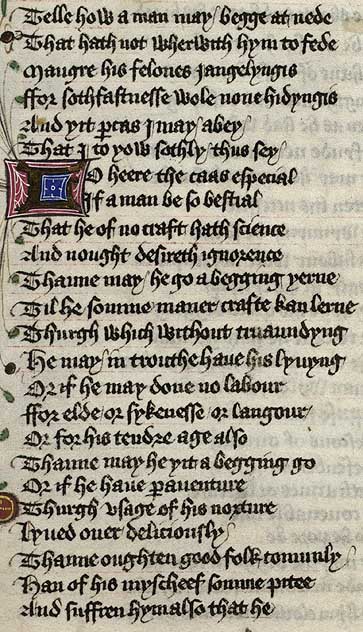 Telle how a man may begge at nede
That hath not wherwith hym to fede
Maugre his felones jangelyngis
ffor sothfastnesse wole none hidyngis
And yit percas I may abey
That I to yow sothly thus sey
Lo heere the caas especial
If a man be so bestial
That he of no craft hath science
And nought desireth ignorence
Thanne may he go a begging yerne
Til he somme maner crafte kan lerne
Thurgh which without truaundyng
He may in trouthe haue his lyuyng
Or if he may done no labour
ffor elde or sykenesse or langour
Or for his tendre age also
Thanne may he yit a begging go
Or if he haue perauenture
Thurgh vsage of his noriture
Lyued ouer deliciously
Thanne oughten good folk comunly
Han of his myscheef somme pitee
And suffren hym also that he